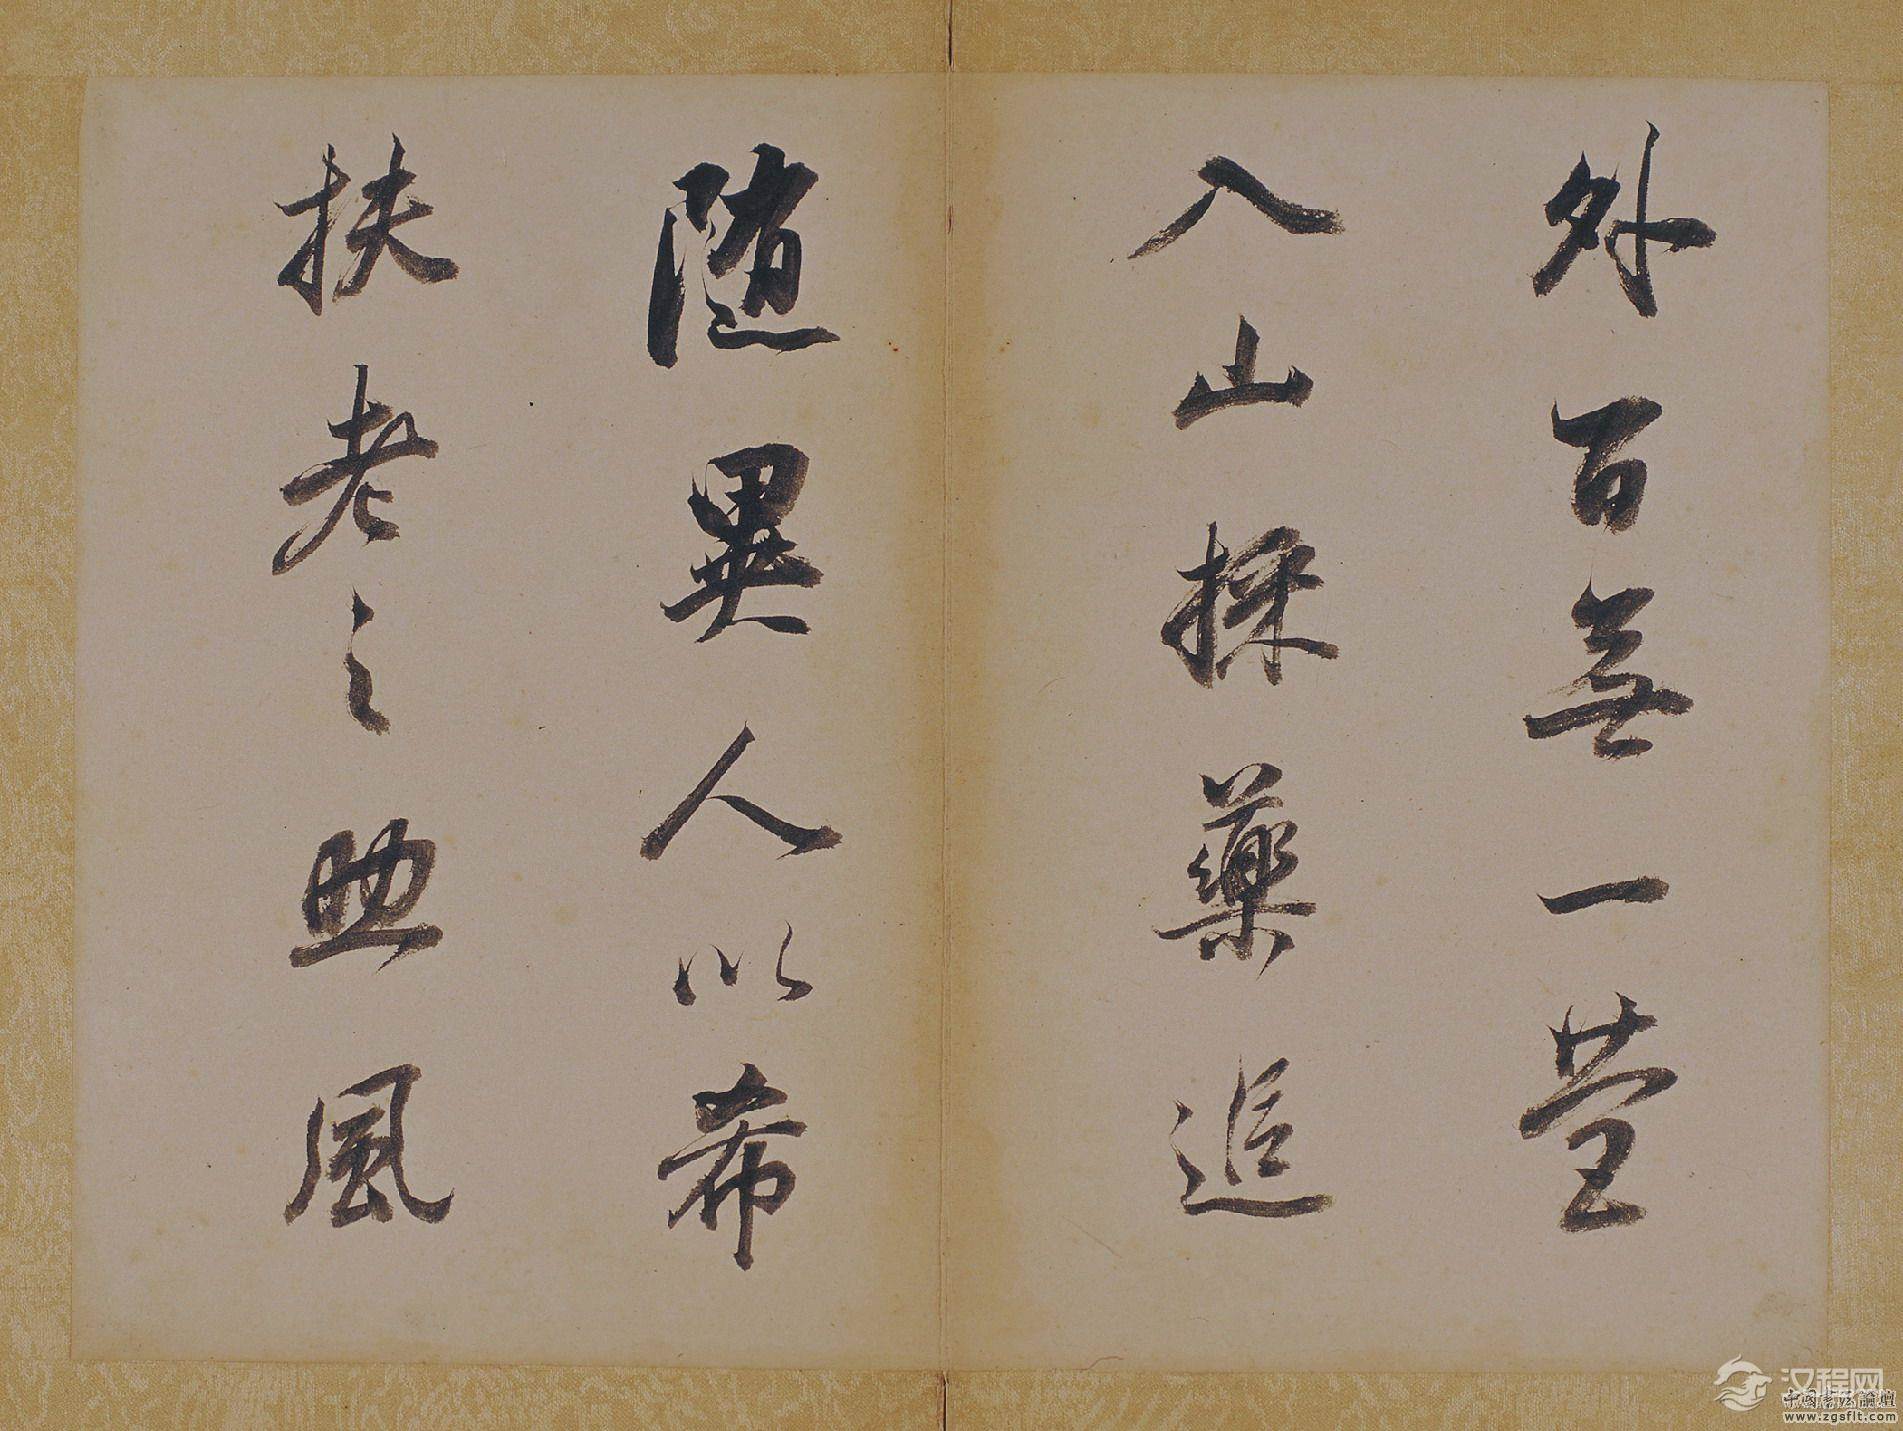 外百無一營
入山採藥追
随異人以希
扶老之助風
汉程网
中国书法論壇
www.zgsflt.com